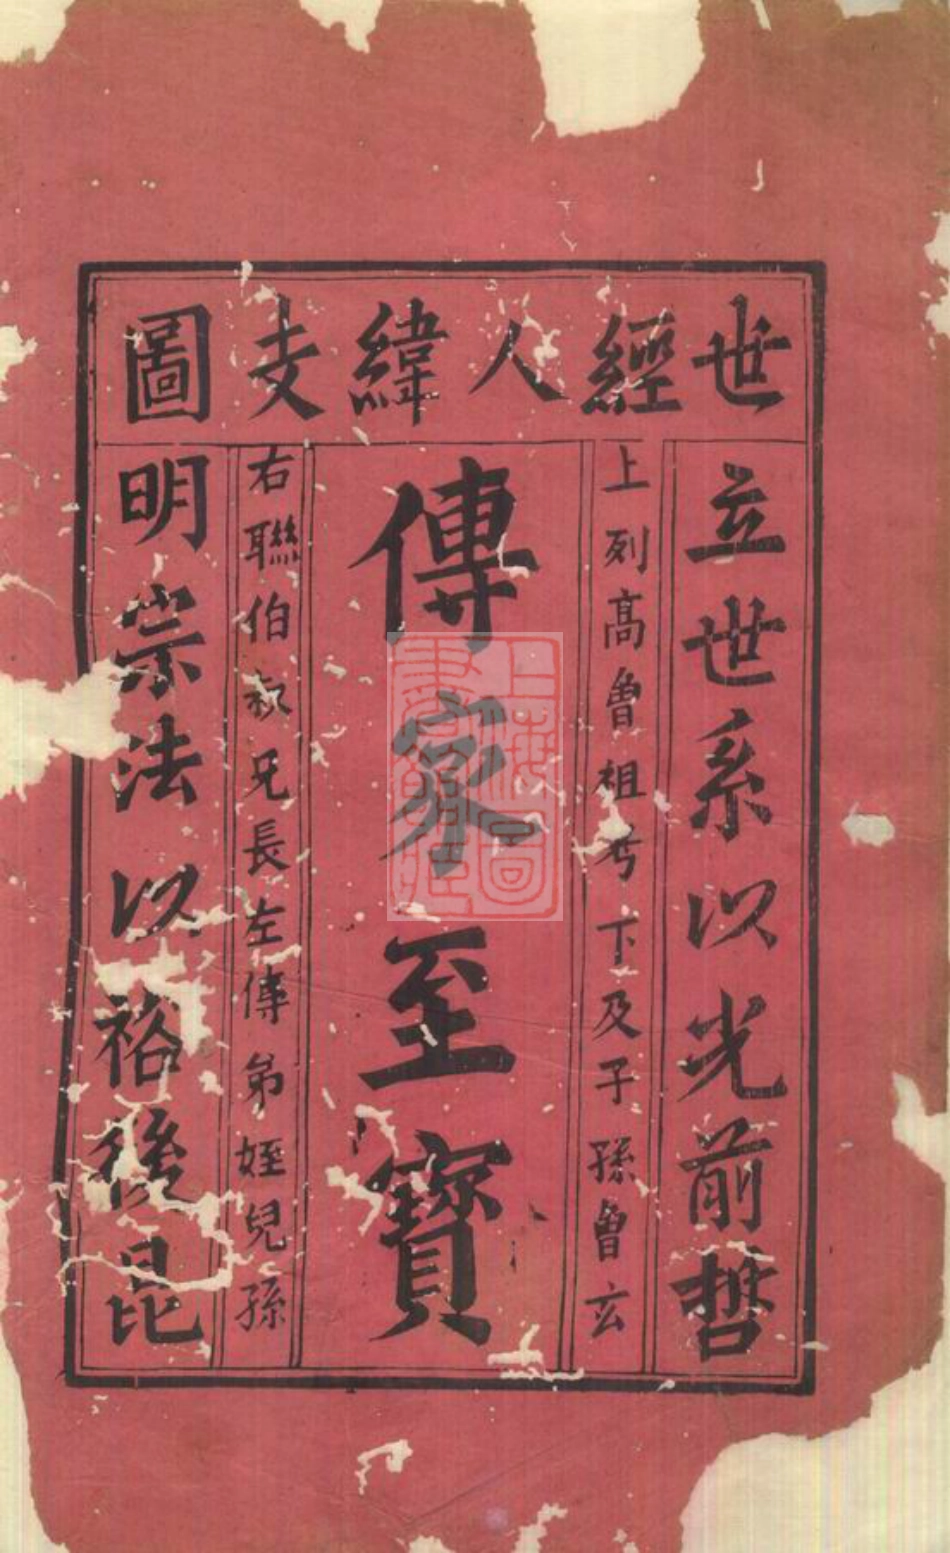 世經人緯支圖
立世系以光前哲
上列髙曾祖考下及子孫曾玄
傳家至寶
右聯伯叔兄長左傳弟姪兒孫
明宗法以裕後昆
上海圖書館藏